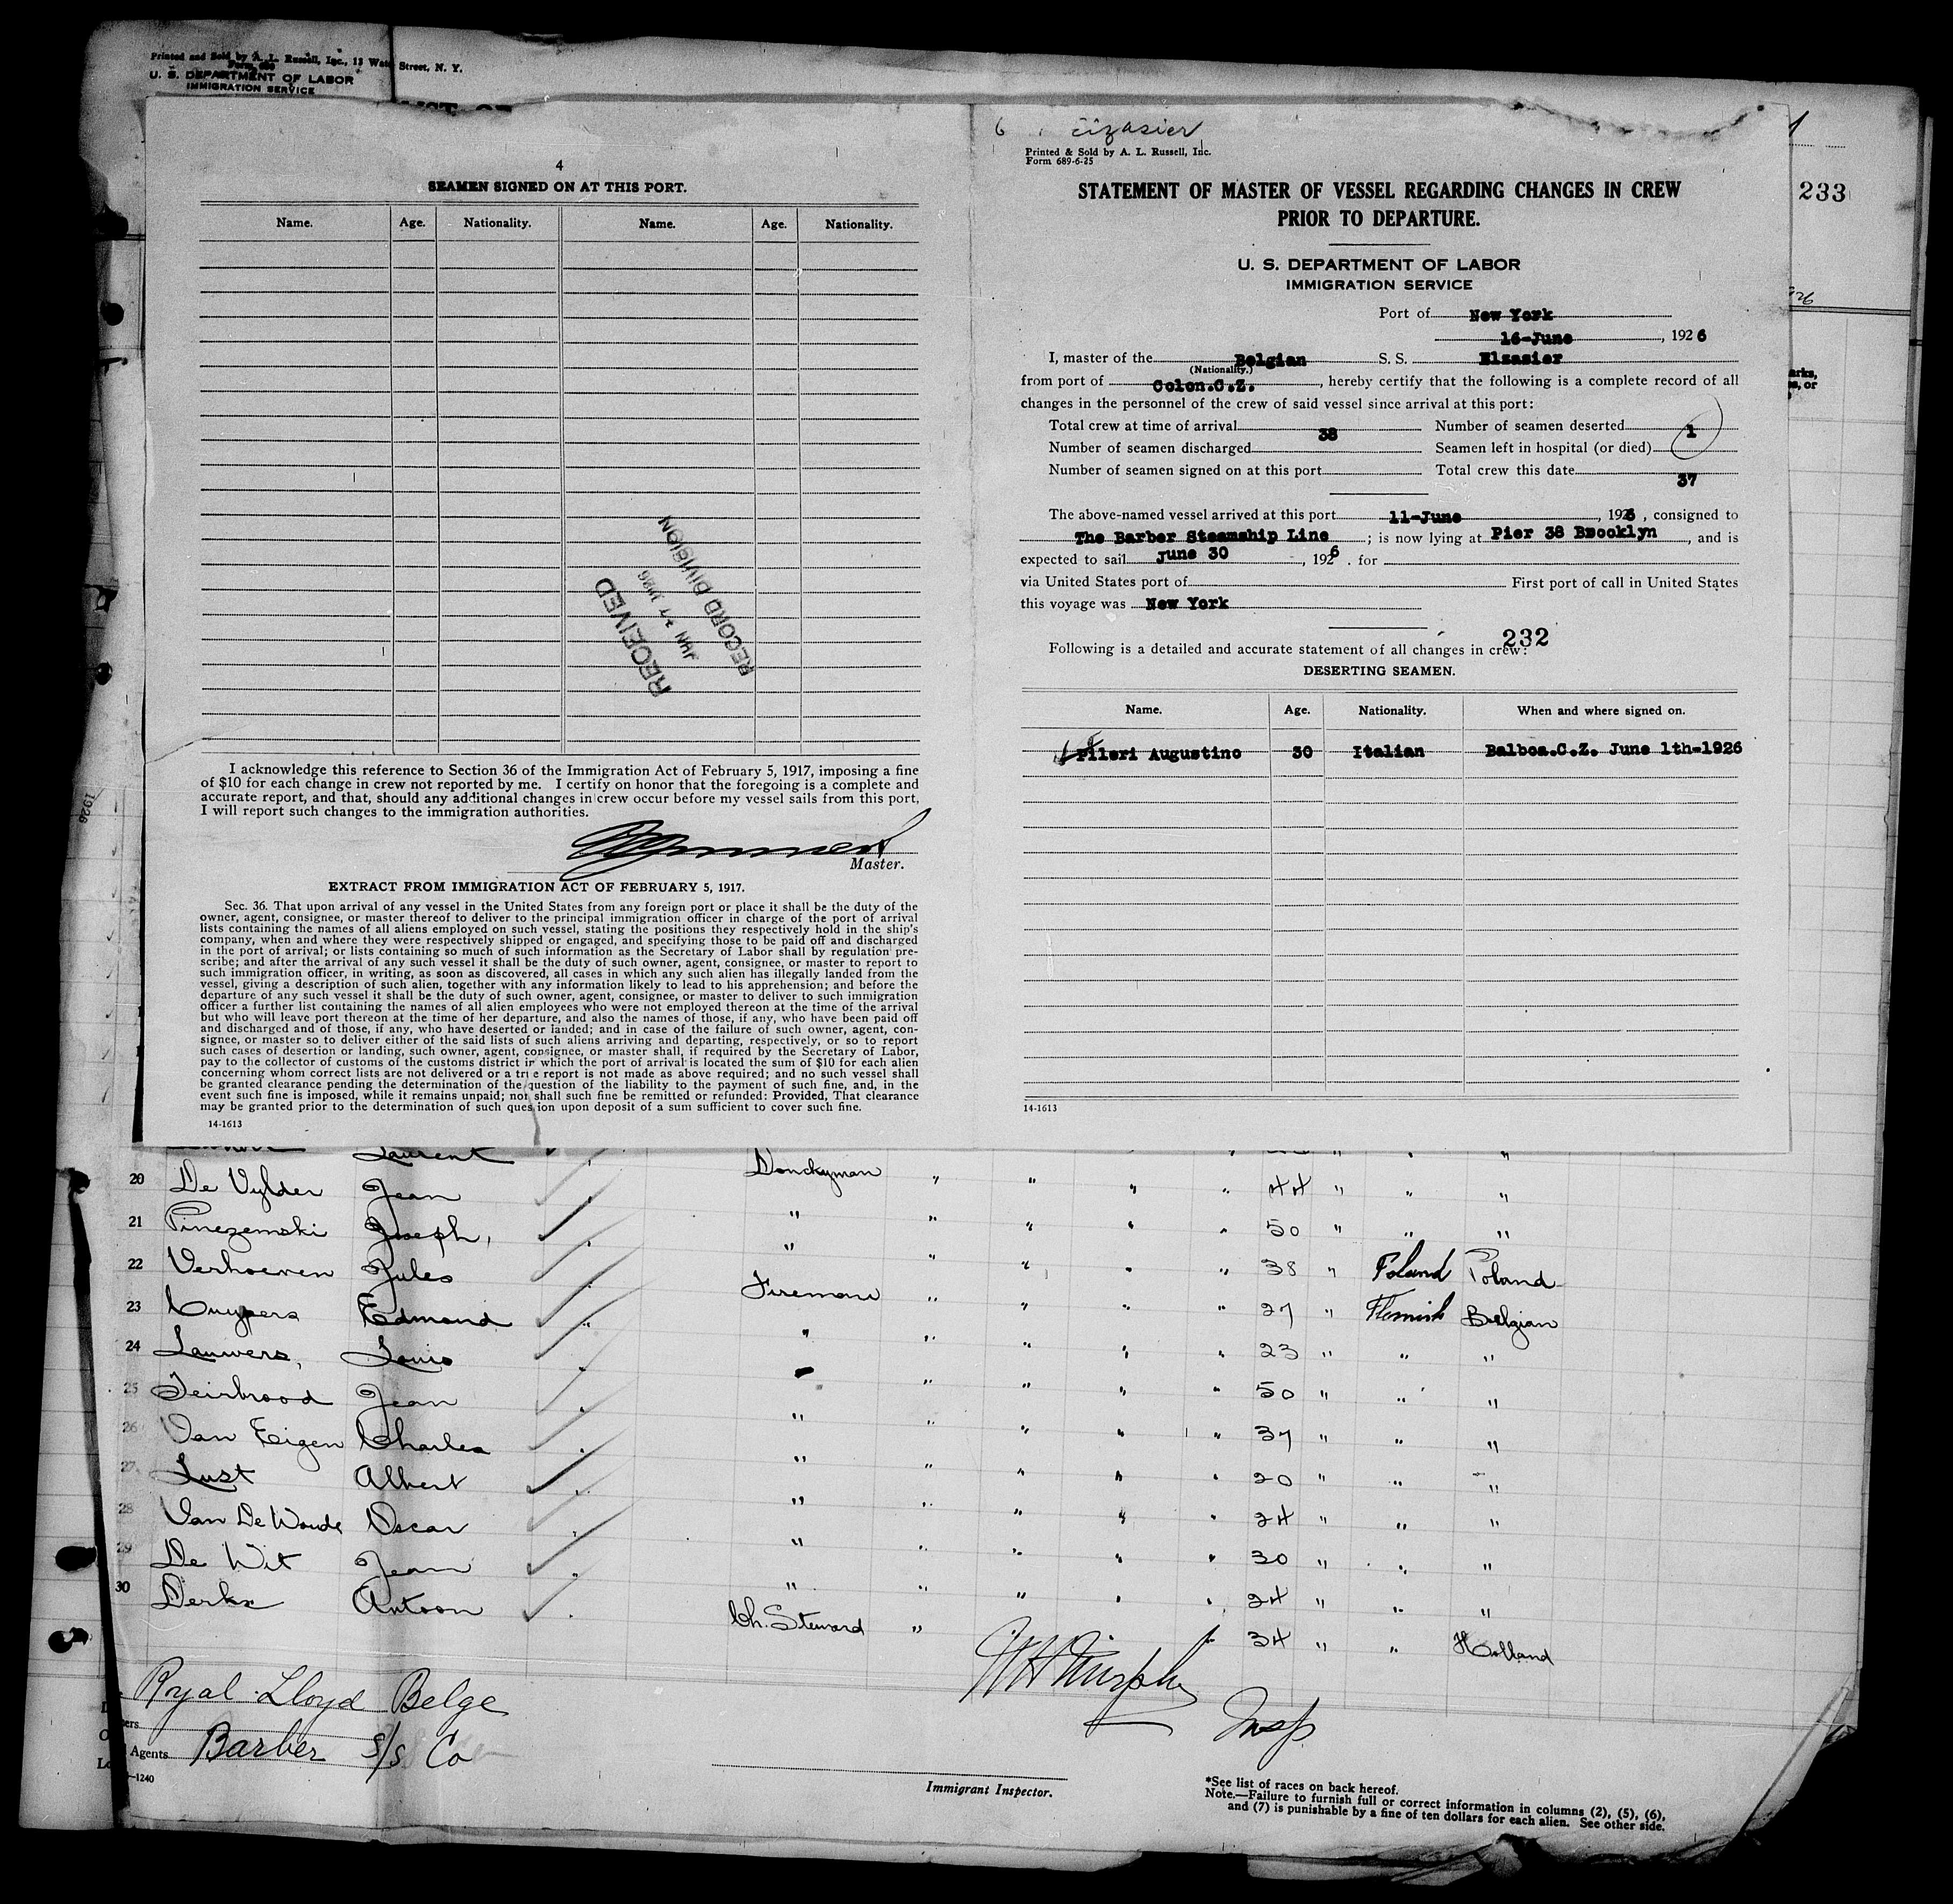 Printed and Sold by A. L. Russell, Inc., 13 Water Street, N. Y.
U. S. DEPARTMENT OF LABOR
IMMIGRATION SERVICE
233
4
SEAMEN SIGNED ON AT THIS PORT.
Name. Age. Nationality. Name. Age. Nationality.
RECEIVED
RECORD DIVISION
I acknowledge this reference to Section 36 of the Immigration Act of February 5, 1917, imposing a fine
of $10 for each change in crew not reported by me. I certify on honor that the foregoing is a complete and
accurate report, and that, should any additional changes in crew occur before my vessel sails from this port,
I will report such changes to the immigration authorities.
Master.
EXTRACT FROM IMMIGRATION ACT OF FEBRUARY 5, 1917.
Sec. 36. That upon arrival of any vessel in the United States from any foreign port or place it shall be the duty of the
owner, agent, consignee, or master thereof to deliver to the principal immigration officer in charge of the port of arrival
lists containing the names of all aliens employed on such vessel, stating the positions they respectively hold in the ship's
company, when and where they were respectively shipped or engaged, and specifying those to be paid off and discharged
in the port of arrival; or lists containing so much of such information as the Secretary of Labor shall by regulation pre-
scribe; and after the arrival of any such vessel it shall be the duty of such owner, agent, consignee, or master to report to
such immigration officer, in writing, as soon as discovered, all cases in which any such alien has illegally landed from the
vessel, giving a description of such alien, together with any information likely to lead to his apprehension; and before the
departure of any such vessel it shall be the duty of such owner, agent, consignee, or master to deliver to such immigration
officer a further list containing the names of all alien employees who were not employed thereon at the time of the arrival
but who will leave port thereon at the time of her departure, and also the names of those, if any, who have been paid off
and discharged and of those, if any, who have deserted or landed; and in case of the failure of such owner, agent, con-
signee, or master so to deliver either of the said lists of such aliens arriving and departing, respectively, or so to report
such cases of desertion or landing, such owner, agent, consignee, or master shall, if required by the Secretary of Labor,
pay to the collector of customs of the customs district in which the port of arrival is located the sum of $10 for each alien
concerning whom correct lists are not delivered or a true report is not made as above required; and no such vessel shall
be granted clearance pending the determination of the question of the liability to the payment of such fine, and, in the
event such fine is imposed, while it remains unpaid; nor shall such fine be remitted or refunded: Provided, That clearance
may be granted prior to the determination of such question upon deposit of a sum sufficient to cover such fine.
14-1613
6 Elzasier
Printed & Sold by A. L. Russell, Inc.
Form 689-6-25
STATEMENT OF MASTER OF VESSEL REGARDING CHANGES IN CREW
PRIOR TO DEPARTURE.
U. S. DEPARTMENT OF LABOR
IMMIGRATION SERVICE
Port of New York
16-June, 1926
I, master of the Belgian S. S. Elzasier
(Nationality.)
from port of Colon.C.Z., hereby certify that the following is a complete record of all
changes in the personnel of the crew of said vessel since arrival at this port:
Total crew at time of arrival 38 Number of seamen deserted 1
Number of seamen discharged Seamen left in hospital (or died)
Number of seamen signed on at this port Total crew this date 37
The above-named vessel arrived at this port 11-June, 1926, consigned to
The Barber Steamship Line; is now lying at Pier 38 Brooklyn, and is
expected to sail June 30, 1926. for
via United States port of First port of call in United States
this voyage was New York
232
Following is a detailed and accurate statement of all changes in crew:
DESERTING SEAMEN.
Name. Age. Nationality. When and where signed on.
Pileri Augustino 30 Italian Balboa.C.Z. June 1th-1926
14-1613
Laurent Donckyman
20 De Vylder Jean " " " " " 44 " " "
21 Pinezemski Joseph, " " " " " 50 " " "
22 Verhoeven Jules Firemans " " " " 38 " Poland Poland
23 Cuypers Edmond " " " " " 27 " Flemish Belgian
24 Lauwers, Louis " " " " 23 " " "
25 Teirbrood Jean " " " " " 50 " " "
26 Van Eigen Charles " " " " " 37 " " "
27 Lust Albert " " " " " 20 " " "
28 Van De Woude Oscar " " " " " 24 " " "
29 De Wit Jean " " " " " 30 " " "
30 Derks Antoon Ch. Steward " " " " 24 " " "
34 " " Holland
Royal Lloyd Belge
Barber S/S Co
Agents
W H Murphy
Insp
Immigrant Inspector.
*See list of races on back hereof.
Note.—Failure to furnish full or correct information in columns (2), (5), (6),
and (7) is punishable by a fine of ten dollars for each alien. See other side.